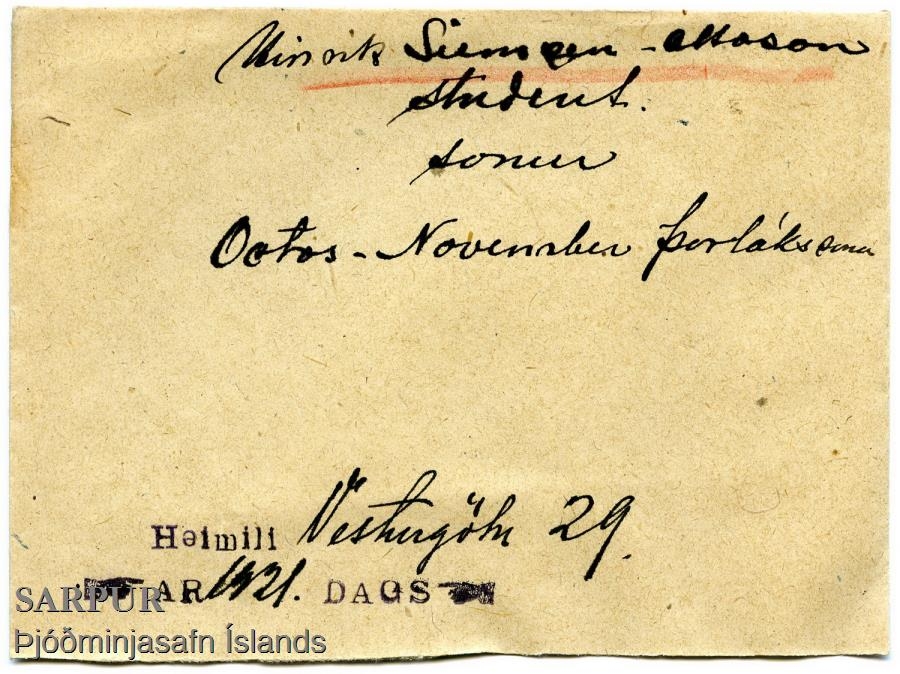 Hinrik Siemsen-Ottoson
student.
sonur
Ottos - November Þorlákssonar
Heimili Vesturgötu 29.
AR 1921. DAGS
SARPUR
Þjóðminjasafn Íslands